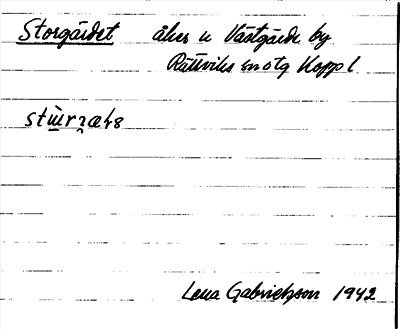 Storgärdet åker n Västgärde by
Rättviks sn o tg Kopp l
Lena Gabrielsson 1942